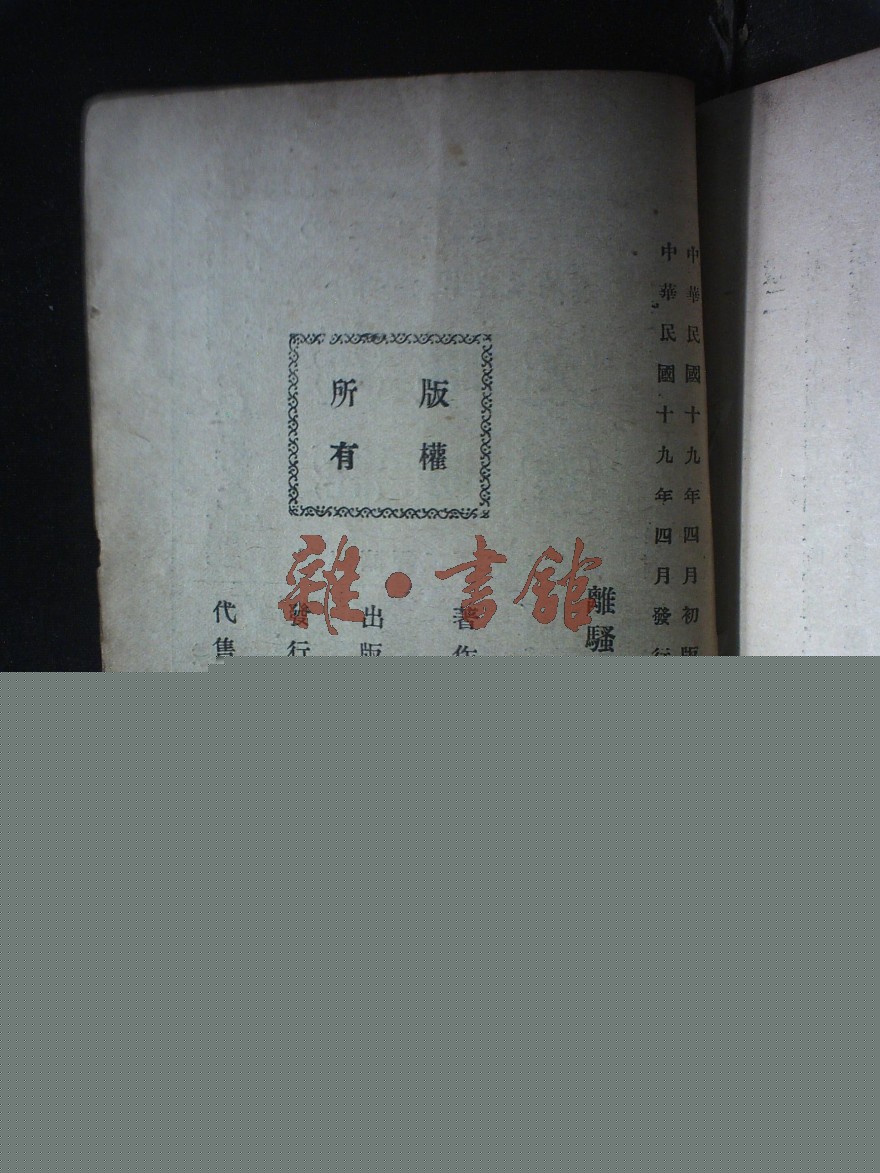 中華民國十九年四月初版
中華民國十九年四月發行
離騷
著作
出版
發行
代售
版權
所有
雜•書館